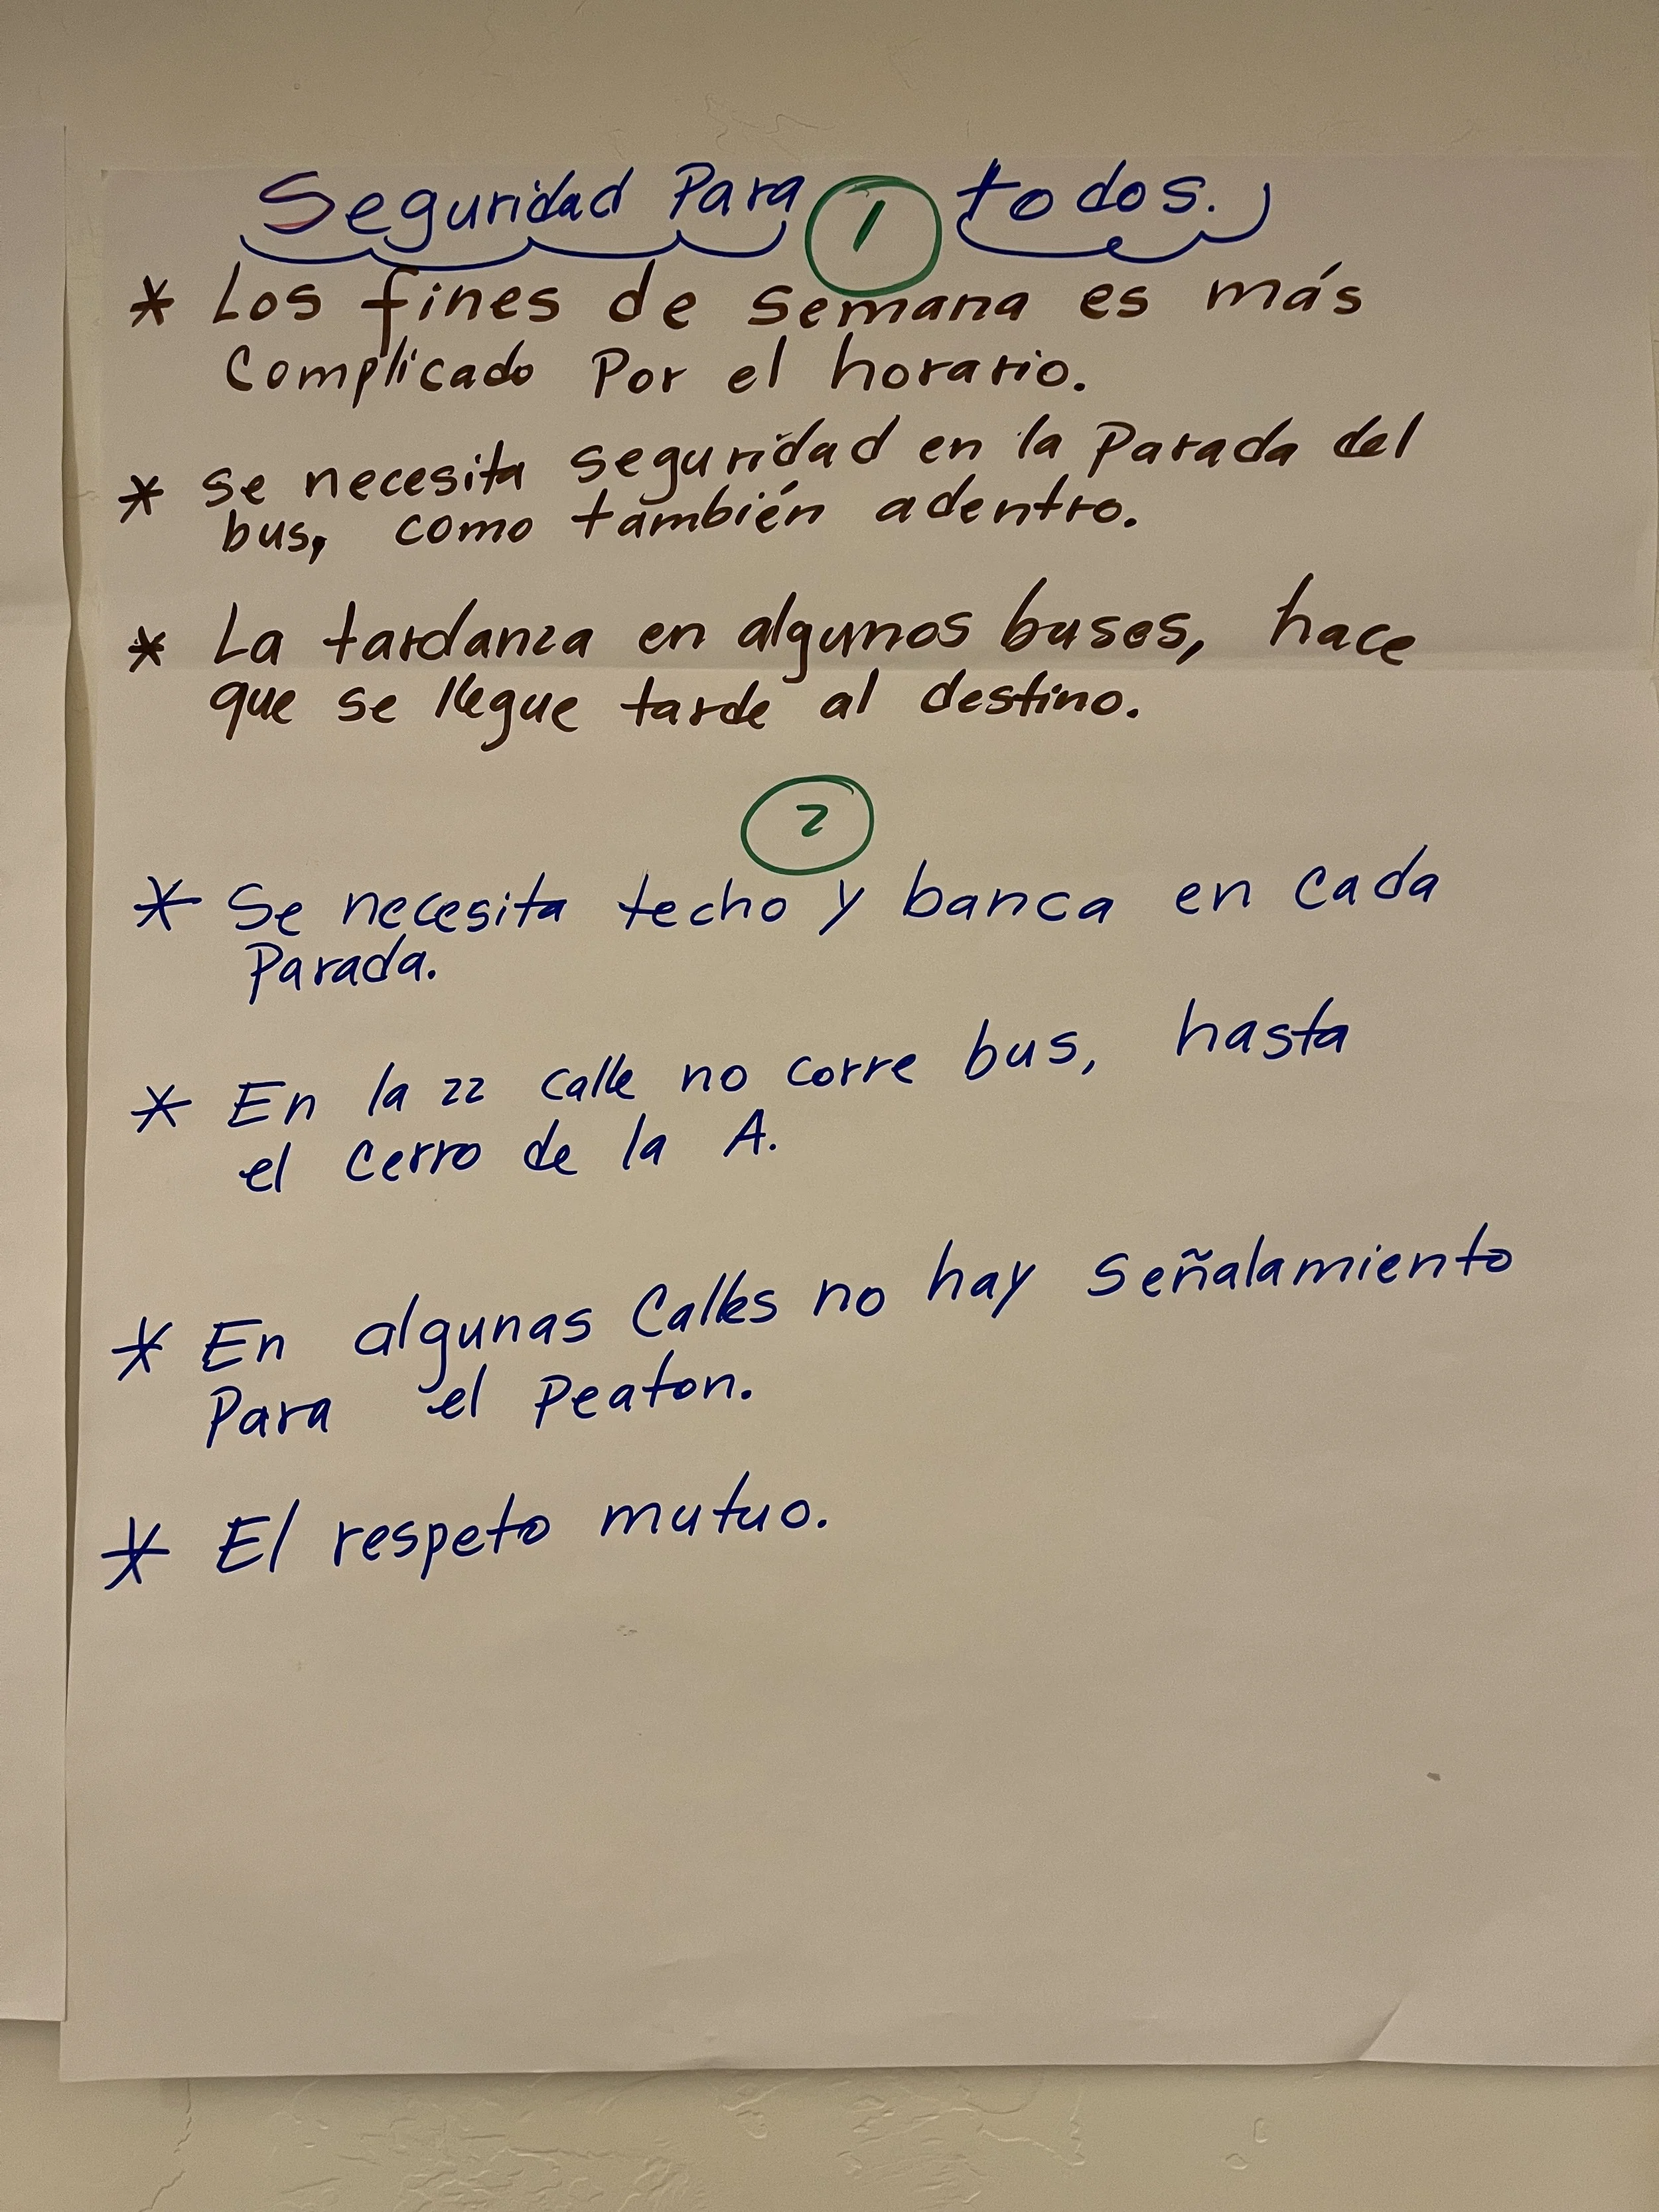 Seguridad Para 1 todos.
* Los fines de semana es más
complicado Por el horario.
* se necesita seguridad en la Parada del
bus, como también adentro.
* La tardanza en algunos buses, hace
que se llegue tarde al destino.
2
* Se necesita techo y banca en cada
Parada.
* En la 22 calle no corre bus, hasta
el cerro de la A.
* En algunas Calles no hay señalamiento
Para el Peaton.
* El respeto mutuo.